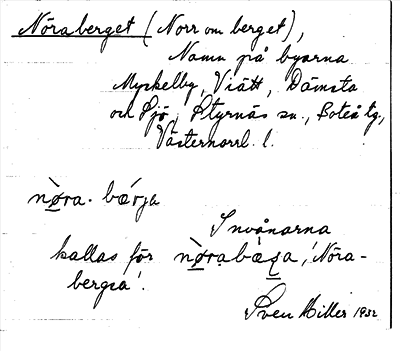 Nöraberget (Norr om berget),
Namn på byarna
Myckelby, Viätt, Dämsta
och Sjö, Styrnäs sn., Boteå tg,
Västernorrl. l.
nø̀ra. bærja
Invånarna
kallas för nø̀rabæra, 'Nöra-
bergra'.
Sven Hiller 1932